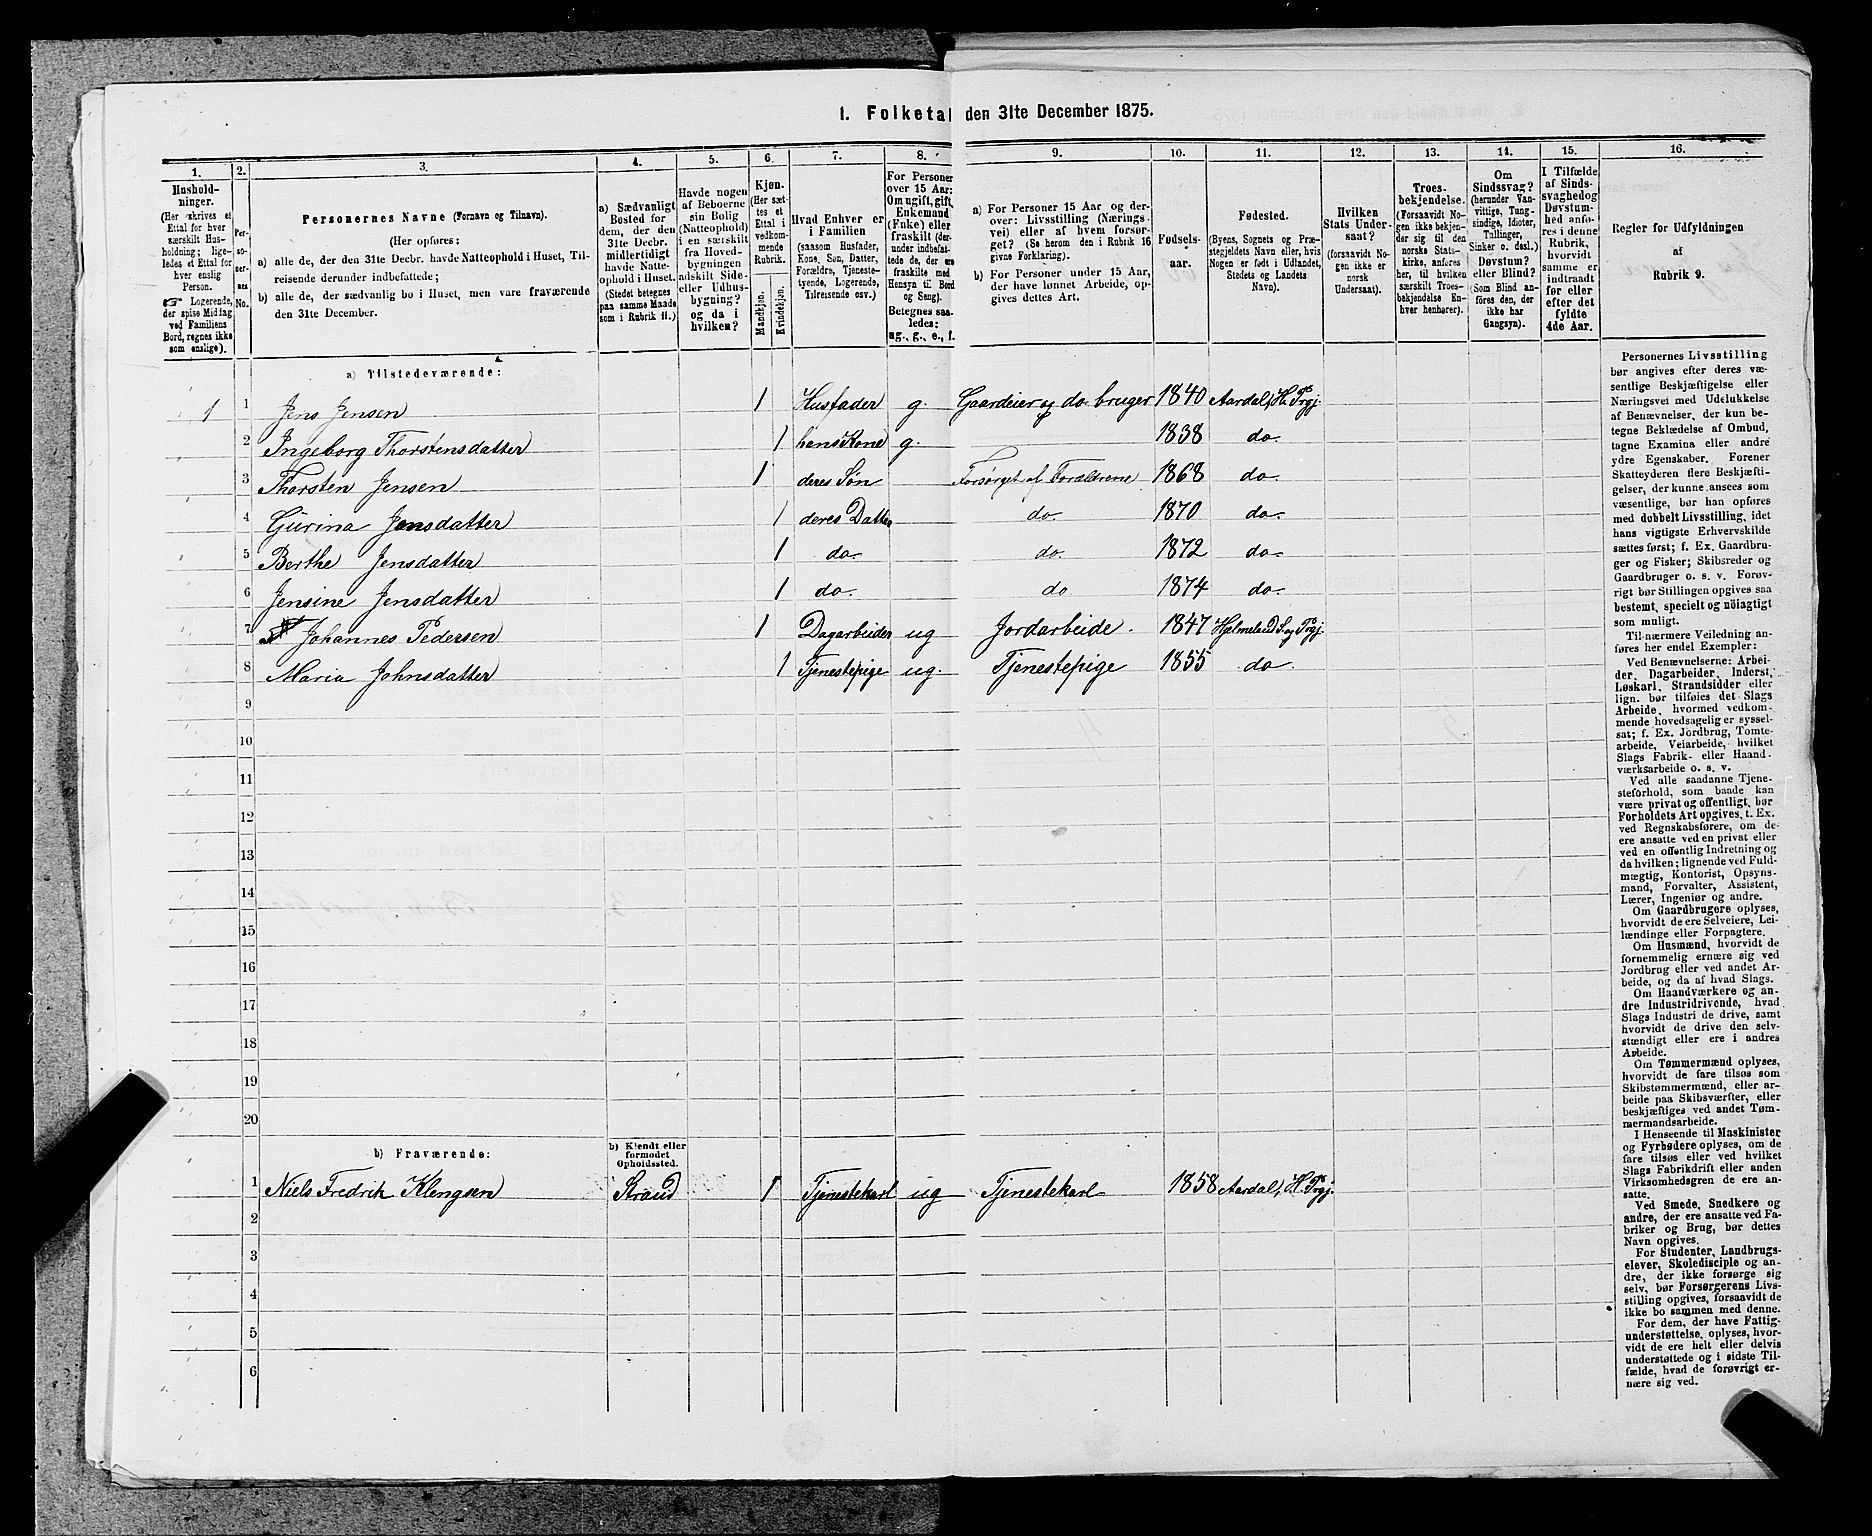 1. Folketal den 31te December 1875.
1. 2. 3. 4. 5. 6. 7. 8. 9. 10. 11. 12. 13. 14. 15. 16.
Hushold-
ninger.
(Her skrives et
Ettal for hver
særskilt Hus-
holdning; lige-
ledes et Ettal for
hver enslig
Person.
☞ Logerende,
der spise Middag
ved Familiens
Bord, regnes ikke
som enslige).
Per-
so-
ner-
nes
No.
Personernes Navne (Fornavn og Tilnavn).
(Her opføres:
a) alle de, der den 31te Decbr. havde Natteophold i Huset, Til-
reisende derunder indbefattede;
b) alle de, der sædvanlig bo i Huset, men vare fraværende
den 31te December.
a) Sædvanligt
Bosted for
dem, der den
31te Decbr.
midlertidigt
havde Natte-
ophold i Huset
(Stedet betegnes
paa samme Maade
som i Rubrik 11.)
Havde nogen
af Beboerne
sin Bolig
(Natteophold)
i en særskilt
fra Hoved-
bygningen
adskilt Side-
eller Udhus-
bygning?
og da i
hvilken?
Kjøn.
(Her sæt-
tes et
Ettal i
vedkom-
mende
Rubrik.
Mandkjøn.
Kvindekjøn.
Hvad Enhver er
i Familien
(saasom Husfader,
Kone, Søn, Datter,
Forældre, Tjeneste-
tyende, Logerende,
Tilreisende osv.)
For Personer
over 15 Aar:
Om ugift, gift,
Enkemand
(Enke) eller
fraskilt (der-
under indbefat-
tede de, der ere
fraskilte med
Hensyn til Bord
og Seng).
Betegnes saa-
ledes:
ug., g., e., f.
a) For Personer 15 Aar og der-
over: Livsstilling (Nærings-
vei) eller af hvem forsør-
get? (Se herom den i Rubrik 16
givne Forklaring).
b) For Personer under 15 Aar,
der have lønnet Arbeide, op-
gives dettes Art.
Fødsels-
aar.
Fødested.
(Byens, Sognets og Præ-
stegjeldets Navn eller, hvis
Nogen er født i Udlandet,
Stedets og Landets
Navn).
Hvilken
Stats Under-
saat?
(forsaavidt No-
gen ikke er
norsk
Undersaat).
Troes-
bekjendelse.
(Forsaavidt No-
gen ikke bekjen-
der sig til den
norske Stats-
kirke, anføres
her, til hvilken
særskilt Troes-
bekjendelse En-
hver henhører).
Om
Sindssvag?
(herunder Van-
vittige, Tung-
sindige, Idioter,
Tullinger,
Sinker o. desl.)
Døvstum?
eller Blind?
(Som Blind an-
føres den, der
ikke har
Gangsyn).
I Tilfælde
af Sinds-
svaghed og
Døvstum-
hed anfø-
res i denne
Rubrik,
hvorvidt
samme er
indtraadt
før eller
efter det
fyldte
4de Aar.
Regler for Udfyldningen
af
Rubrik 9.
a) Tilstedeværende:
1 1 Jens Jensen 1 Husfader g. Gaardeier og do. bruger 1840 Aardal, H. Prgj.
2 Ingeborg Thorstensdatter 1 hans Kone g. 1838 do.
3 Thorsten Jensen 1 deres Søn Forsørget af Forældrene 1868 do.
4 Gurina Jensdatter 1 deres Datter do. 1870 do.
5 Berthe Jensdatter 1 do. do. 1872 do.
6 Jensine Jensdatter 1 do. do 1874 do.
7 Johannes Pedersen 1 Dagarbeider ug Jordarbeide. 1847 Hjelmeland S. og Prgj.
8 Maria Johnsdatter 1 Tjenestepige ug. Tjenestepige 1855 do
9
10
11
12
13
14
15
16
17
18
19
20
b) Fraværende:
b) Kjendt eller
formodet
Opholdssted.
1 Niels Fredrik Klengsen Strand 1 Tjenestekarl ug Tjenestekarl 1858 Aardal, H. Prgj.
2
3
4
5
6
Personernes Livsstilling
bør angives efter deres væ-
sentlige Beskjæftigelse eller
Næringsvei med Udelukkelse
af Benævnelser, der kun be-
tegne Beklædelse af Ombud,
tagne Examina eller andre
ydre Egenskaber. Forener
Skatteyderen flere Beskjæfti-
gelser, der kunne ansees som
væsentlige, bør han opføres
med dobbelt Livsstilling, idet
hans vigtigste Erhvervskilde
sættes først; f. Ex. Gaardbru-
ger og Fisker; Skibsreder og
Gaardbruger o. s. v. Forøv-
rigt bør Stillingen opgives saa
bestemt, specielt og nöiagtigt
som muligt.
Til nærmere Veiledning an-
føres her endel Exempler:
Ved Benævnelserne: Arbei-
der, Dagarbeider, Inderst,
Løskarl, Strandsidder eller
lign. bør tilføies det Slags
Arbeide, hvormed vedkom-
mende hovedsagelig er syssel-
sat; f. Ex. Jordbrug, Tomte-
arbeide, Veiarbeide, hvilket
Slags Fabrik- eller Haand-
værksarbeide o. s. v.
Ved alle saadanne Tjene-
steforhold, som baade kan
være privat og offentligt, bør
Forholdets Art opgives, t. Ex.
ved Regnskabsførere, om de
ere ansatte ved en privat eller
ved en offentlig Indretning og
da hvilken; lignende ved Fuld-
mægtig, Kontorist, Opsyns-
mand, Forvalter, Assistent,
Lærer, Ingeniør og andre.
Om Gaardbrugere oplyses,
hvorvidt de ere Selveiere, Lei-
lændinge eller Forpagtere.
Om Husmænd, hvorvidt de
fornemmelig ernære sig ved
Jordbrug eller ved andet Ar-
beide, og da af hvad Slags.
Om Haandværkere og an-
dre Industridrivende, hvad
Slags Industri de drive, samt
hvorvidt de drive den selv-
stændigt eller ere i andres
Arbeide.
Om Tømmermænd oplyses,
hvorvidt de fare tilsøs som
Skibstømmermænd, eller ar-
beide paa Skibsværfter, eller
beskjæftiges ved andet Tøm-
mermandsarbeide.
I Henseende til Maskinister
og Fyrbødere oplyses, om de
fare tilsøs eller ved hvilket
Slags Fabrikdrift eller anden
Virksomhedsgren de ere an-
satte.
Ved Smede, Snedkere og
andre, der ere ansatte ved Fa-
briker og Brug, bør dettes
Navn opgives.
For Studenter, Landbrugs-
elever, Skoledisciple og an-
dre, der ikke forsørge sig
selv, bør Forsørgerens Livs-
stilling opgives, forsaavidt de
ikke bo sammen med denne.
For dem, der have Fattig-
understøttelse, oplyses, hvor-
vidt de ere helt eller delvis
understøttede og i sidste Til-
fælde, hvad de forøvrigt er-
nære sig ved.